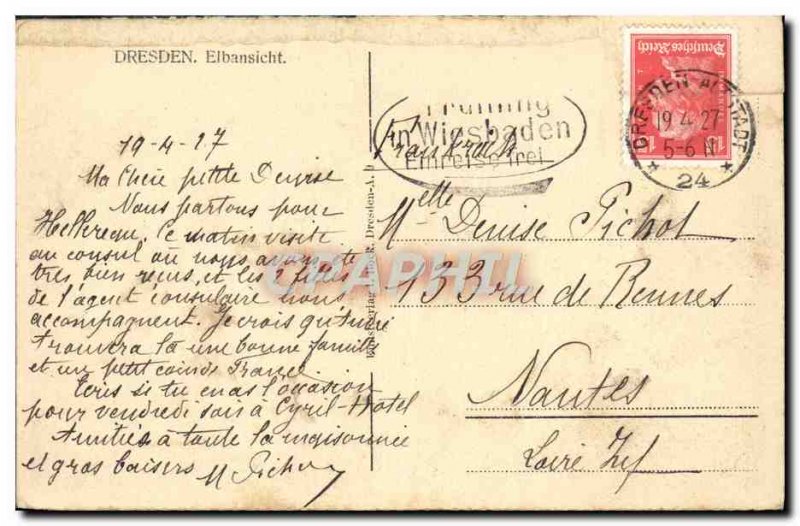 DRESDEN. Elbansicht.
19-4-27
Ma chère petite Denise
Nous partons pour
Hellerau, ce matin visite
au consul où nous avons été
très bien reçus, et les 2 filles
de l'agent consulaire nous
accompagnent. Je crois qu'
trouvera là une bonne famille
et un petit coin de France
Ecris si tu en as l'occasion
pour vendredi soir à Hotel
Amitiés à toute la maisonnée
et gros baisers M Pichot
Dresden-A.
Frühling
in Wiesbaden
Einreise frei
Frankreich
Deutsches Reich
15 15
DRESDEN-ALTSTADT
19 4 27
5-6 N
* 24 *
Melle Denise Pichot
133 rue de Rennes
Nantes
Loire Inf
CPAPHIL.com